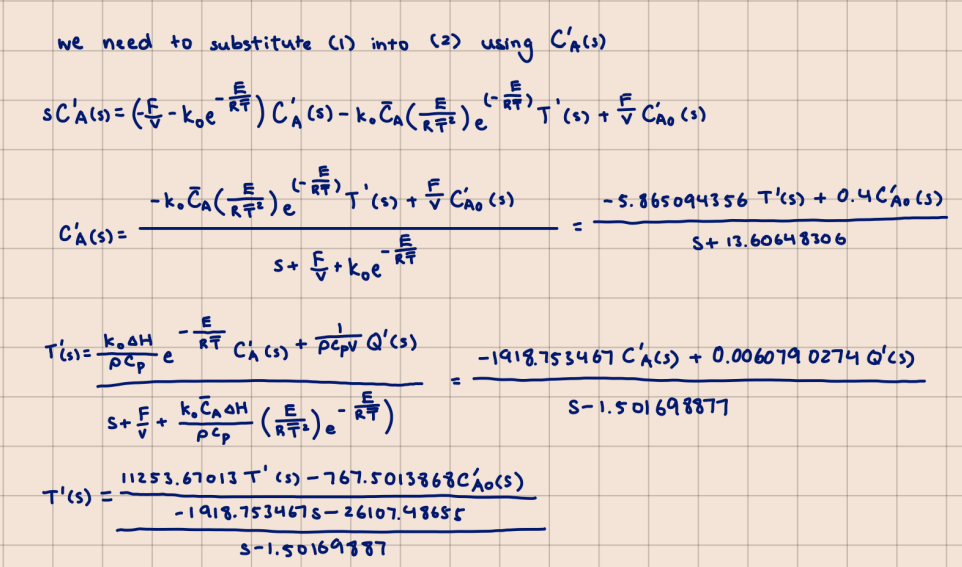 we need to substitute (1) into (2) using C'A(s)
sC'A(s) = (-F/V - k₀e^(-E/RT̄)) C'A(s) - k₀C̄A(E/RT̄²)e^(-E/RT̄) T'(s) + F/V C'A₀(s)
C'A(s) = (-k₀C̄A(E/RT̄²)e^(-E/RT̄) T'(s) + F/V C'A₀(s)) / (s + F/V + k₀e^(-E/RT̄)) = (-5.865094356 T'(s) + 0.4C'A₀(s)) / (s + 13.60648306)
T'(s) = (k₀ΔH/ρCp e^(-E/RT̄) C'A(s) + 1/ρCpV Q'(s)) / (s + F/V + k₀C̄AΔH/ρCp (E/RT̄²)e^(-E/RT̄)) = (-1918.753467 C'A(s) + 0.0060790274 Q'(s)) / (s - 1.501698877)
T'(s) = ((11253.67013 T'(s) - 767.5013868C'A₀(s)) / (-1918.753467s - 26107.48655)) / (s - 1.50169887)